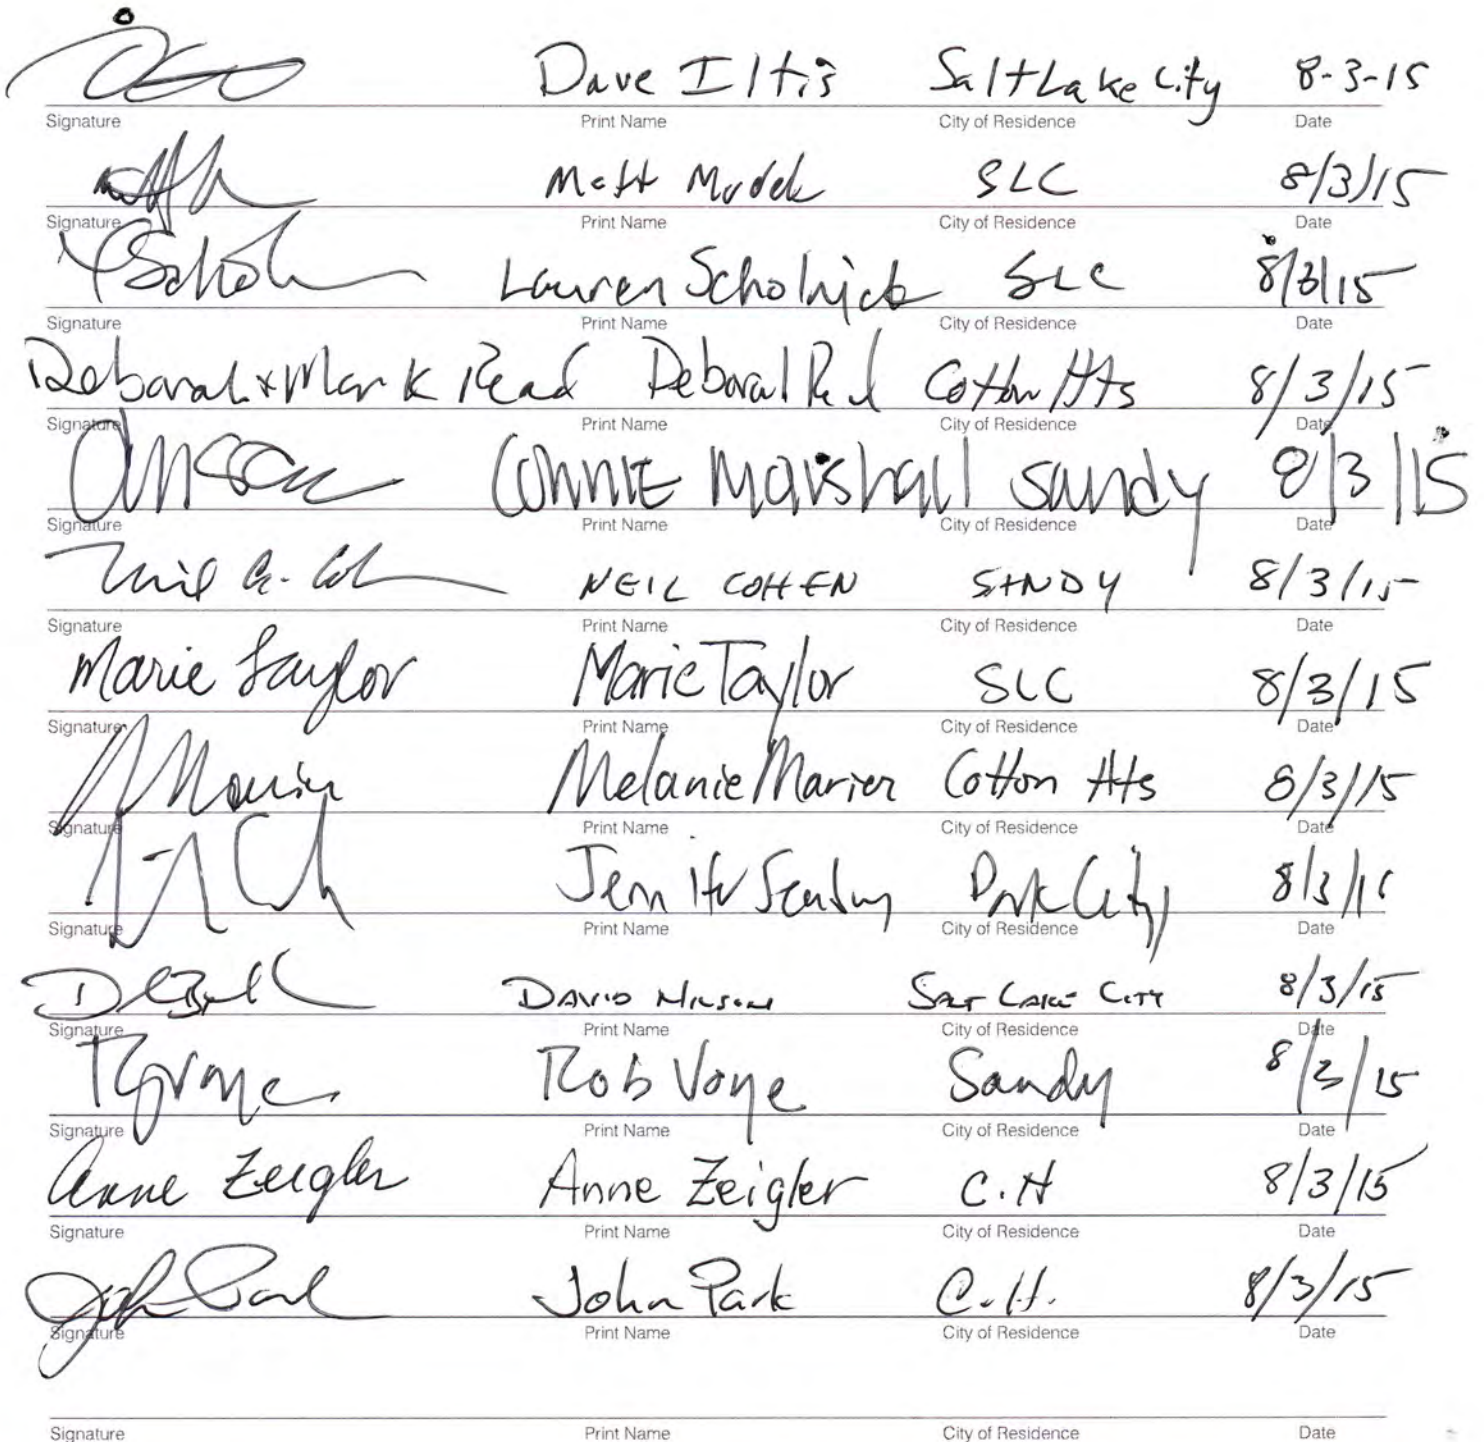 Dave Iltis Salt Lake City 8-3-15
Signature Print Name City of Residence Date
Matt SLC 8/3/15
Signature Print Name City of Residence Date
Lauren Scholnick SLC 8/3/15
Signature Print Name City of Residence Date
Deborah + Mark Read Deborah Read Cotton Hts 8/3/15
Signature Print Name City of Residence Date
Connie Marshall Sandy 8/3/15
Signature Print Name City of Residence Date
Neil NEIL COHEN SANDY 8/3/15
Signature Print Name City of Residence Date
Marie Taylor Marie Taylor SLC 8/3/15
Signature Print Name City of Residence Date
Melanie Marier Cotton Hts 8/3/15
Signature Print Name City of Residence Date
Park City 8/3/15
Signature Print Name City of Residence Date
DAVID SALT LAKE CITY 8/3/15
Signature Print Name City of Residence Date
Rob Voye Sandy 8/3/15
Signature Print Name City of Residence Date
Anne Zeigler Anne Zeigler C.H 8/3/15
Signature Print Name City of Residence Date
John Park John Park C.H. 8/3/15
Signature Print Name City of Residence Date
Signature Print Name City of Residence Date